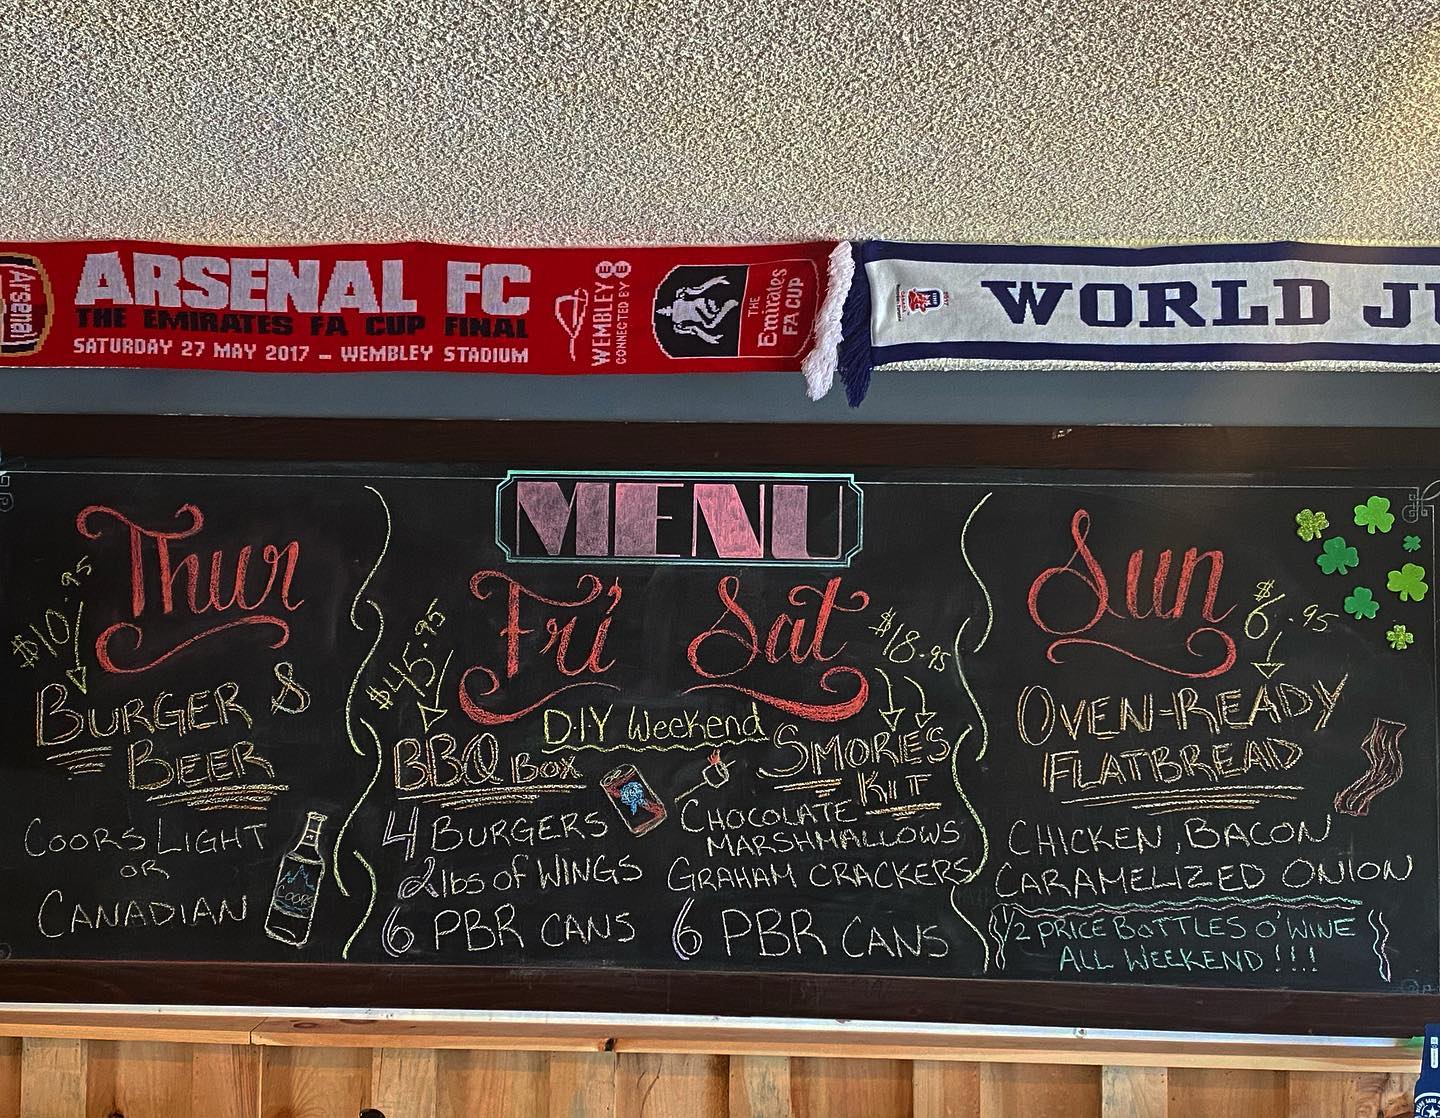 Arsenal
ARSENAL FC
THE EMIRATES FA CUP FINAL
SATURDAY 27 MAY 2017 – WEMBLEY STADIUM
WEMBLEY
CONNECTED BY EE
THE
Emirates
FA CUP
WORLD JU
MENU
Thur
$10.95
BURGER &
BEER
COORS LIGHT
OR
CANADIAN
COORS
Fri Sat
DIY Weekend
$45.95
BBQ BOX
4 BURGERS
2 lbs of WINGS
6 PBR CANS
$18.95
SMORE'S
KIT
CHOCOLATE
MARSHMALLOWS
GRAHAM CRACKERS
6 PBR CANS
Sun
$6.95
OVEN-READY
FLATBREAD
CHICKEN, BACON
CARAMELIZED ONION
1/2 PRICE BOTTLES O' WINE
ALL WEEKEND!!!